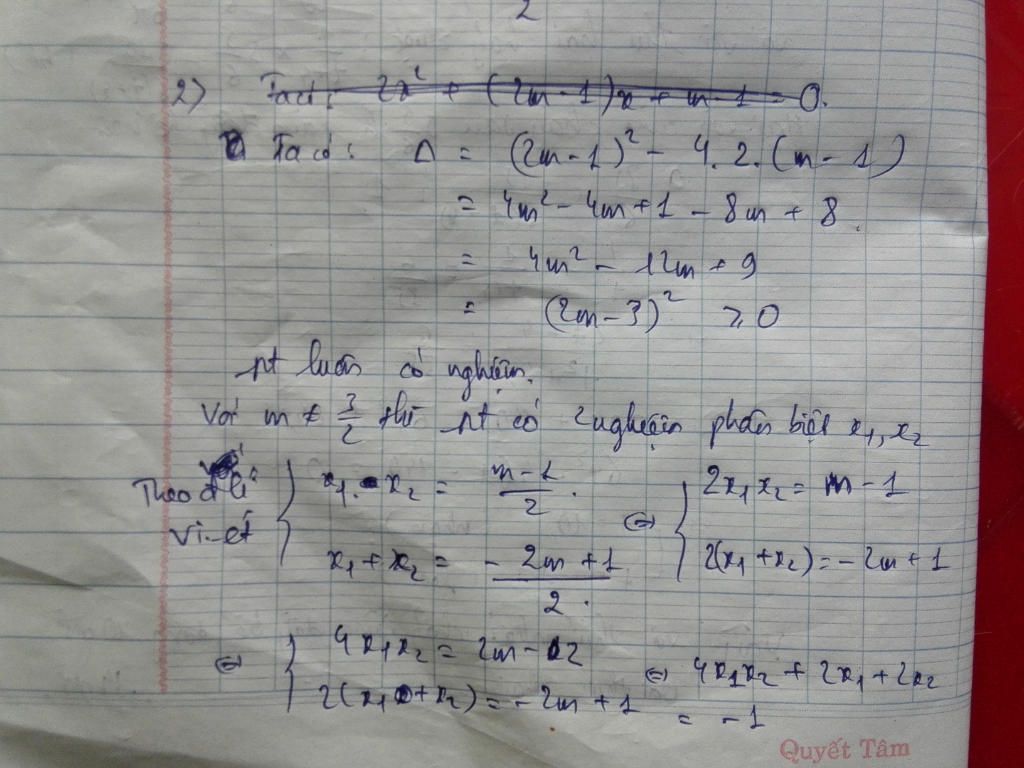 2
2) Ta có: 2x² + (2m - 1)x + m - 1 = 0.
Ta có: Δ = (2m - 1)² - 4. 2. (m - 1)
= 4m² - 4m + 1 - 8m + 8
= 4m² - 12m + 9
= (2m - 3)² ⩾ 0
pt luôn có nghiệm.
Với m ≠ 3/2 thì pt có 2 nghiệm phân biệt x₁, x₂
Theo đ lí Vi-ét { x₁. x₂ = (m - 1)/2. ⇔ { 2x₁x₂ = m - 1
x₁ + x₂ = (- 2m + 1)/2. 2(x₁ + x₂) = - 2m + 1
⇔ { 4x₁x₂ = 2m - 2 ⇔ 4x₁x₂ + 2x₁ + 2x₂
2(x₁ + x₂) = - 2m + 1 = - 1
Quyết Tâm